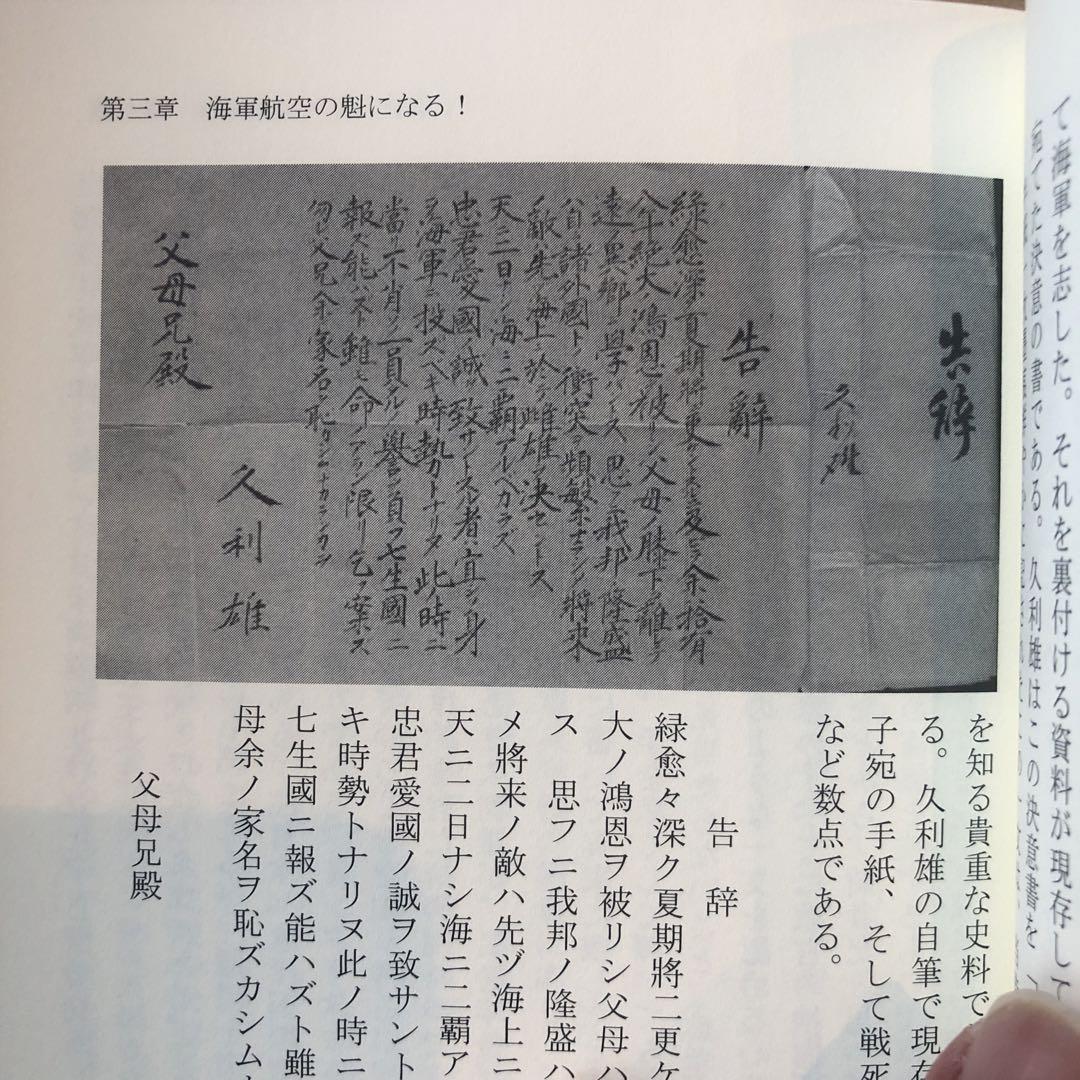 第三章　海軍航空の魁になる！
て海軍を志した。それを裏付ける資料が現存して
宛てた決意の書である。久利雄はこの決意書を
を知る貴重な史料で
る。久利雄の自筆で現存
子宛の手紙、そして戦死
など数点である。
告辞
久利雄
告辭
緑愈深夏期將
余拾有
八年絶大ノ鴻恩被リシ父母ノ膝下ヲ離レテ
遠異郷ニ學バントス思フニ我邦ノ隆盛
ハ自諸外國トノ衝突ヲ頻繁ナラシメ將来
ノ敵ハ先ヅ海上ニ於テ雌雄ヲ決セントス
天ニ二日ナシ海ニ二覇アルベカラズ
忠君愛國ノ誠ヲ致サントスル者ハ宜シク身
ヲ海軍ニ投スベキ時勢トナリヌ此ノ時ニ
當リ不肖ソノ一員タルノ譽ヲ負フ七生國ニ
報ズ能ハズト雖モ命ノアラン限リ乞フ案ズ
勿レ父兄余家名ヲ恥カシムナカランカヲ
久利雄
父母兄殿
告辞
緑愈々深ク夏期將ニ更ケ
大ノ鴻恩ヲ被リシ父母ハ
ス　思フニ我邦ノ隆盛ハ
メ將来ノ敵ハ先ヅ海上ニ
天ニ二日ナシ海ニ二覇ア
忠君愛國ノ誠ヲ致サント
キ時勢トナリヌ此ノ時ニ
七生國ニ報ズ能ハズト雖
母余ノ家名ヲ恥ズカシム
父母兄殿